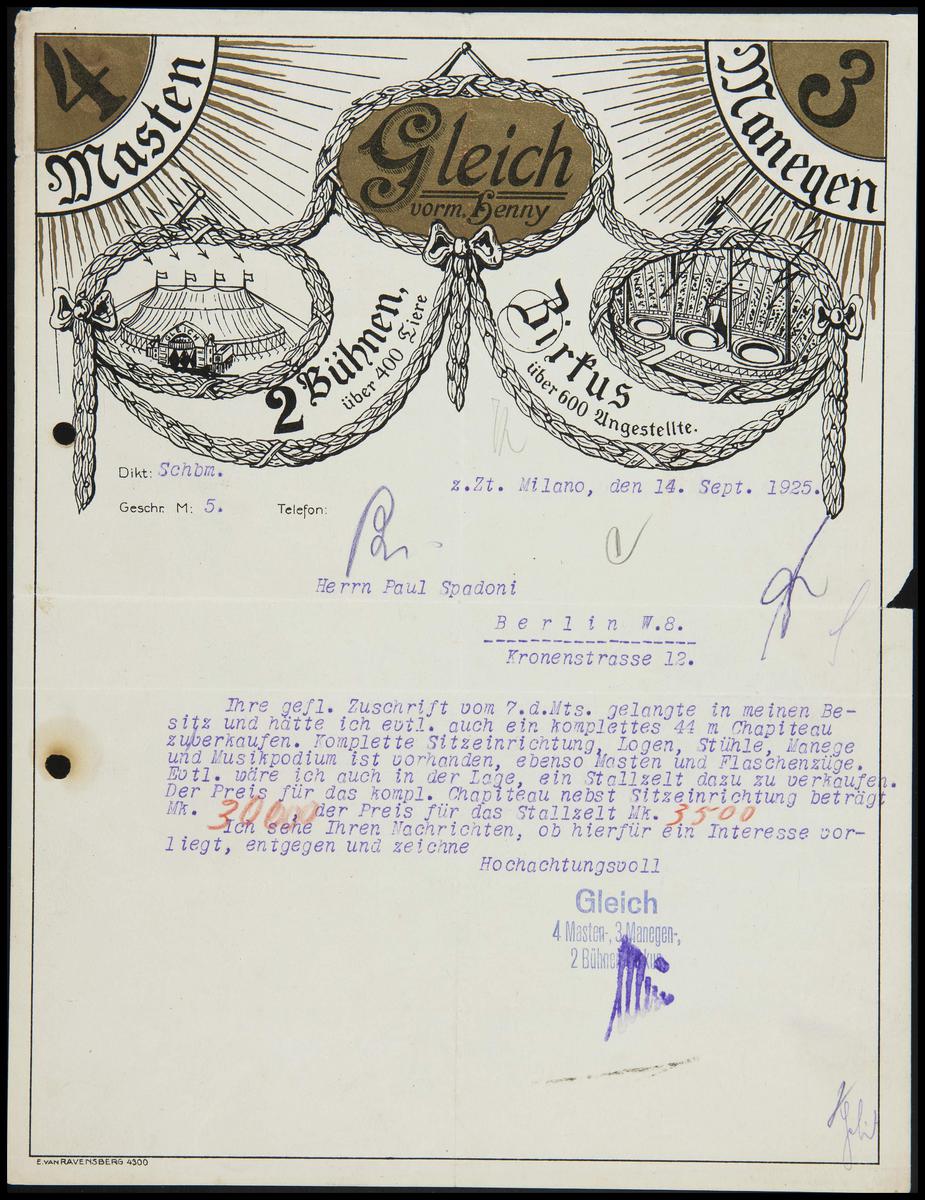 4 Masten
3 Manegen
Gleich
vorm. Henny
2 Bühnen,
über 400 Tiere
Zirkus
über 600 Angestellte.
Dikt: Schbm.
z.Zt. Milano, den 14. Sept. 1925.
Geschr. M: 5.
Telefon:
Herrn Paul Spadoni
Berlin W.8.
Kronenstrasse 12.
Ihre gefl. Zuschrift vom 7.d.Mts. gelangte in meinen Be-
sitz und hätte ich evtl. auch ein komplettes 44 m Chapiteau
zuverkaufen. Komplette Sitzeinrichtung, Logen, Stühle, Manege
und Musikpodium ist vorhanden, ebenso Masten und Flaschenzüge.
Evtl. wäre ich auch in der Lage, ein Stallzelt dazu zu verkaufen.
Der Preis für das kompl. Chapiteau nebst Sitzeinrichtung beträgt
Mk. 30000, der Preis für das Stallzelt Mk. 3500
Ich sehe Ihren Nachrichten, ob hierfür ein Interesse vor-
liegt, entgegen und zeichne
Hochachtungsvoll
Gleich
4 Masten-, 3 Manegen-,
2 Bühnen
E. VAN RAVENSBERG 4300